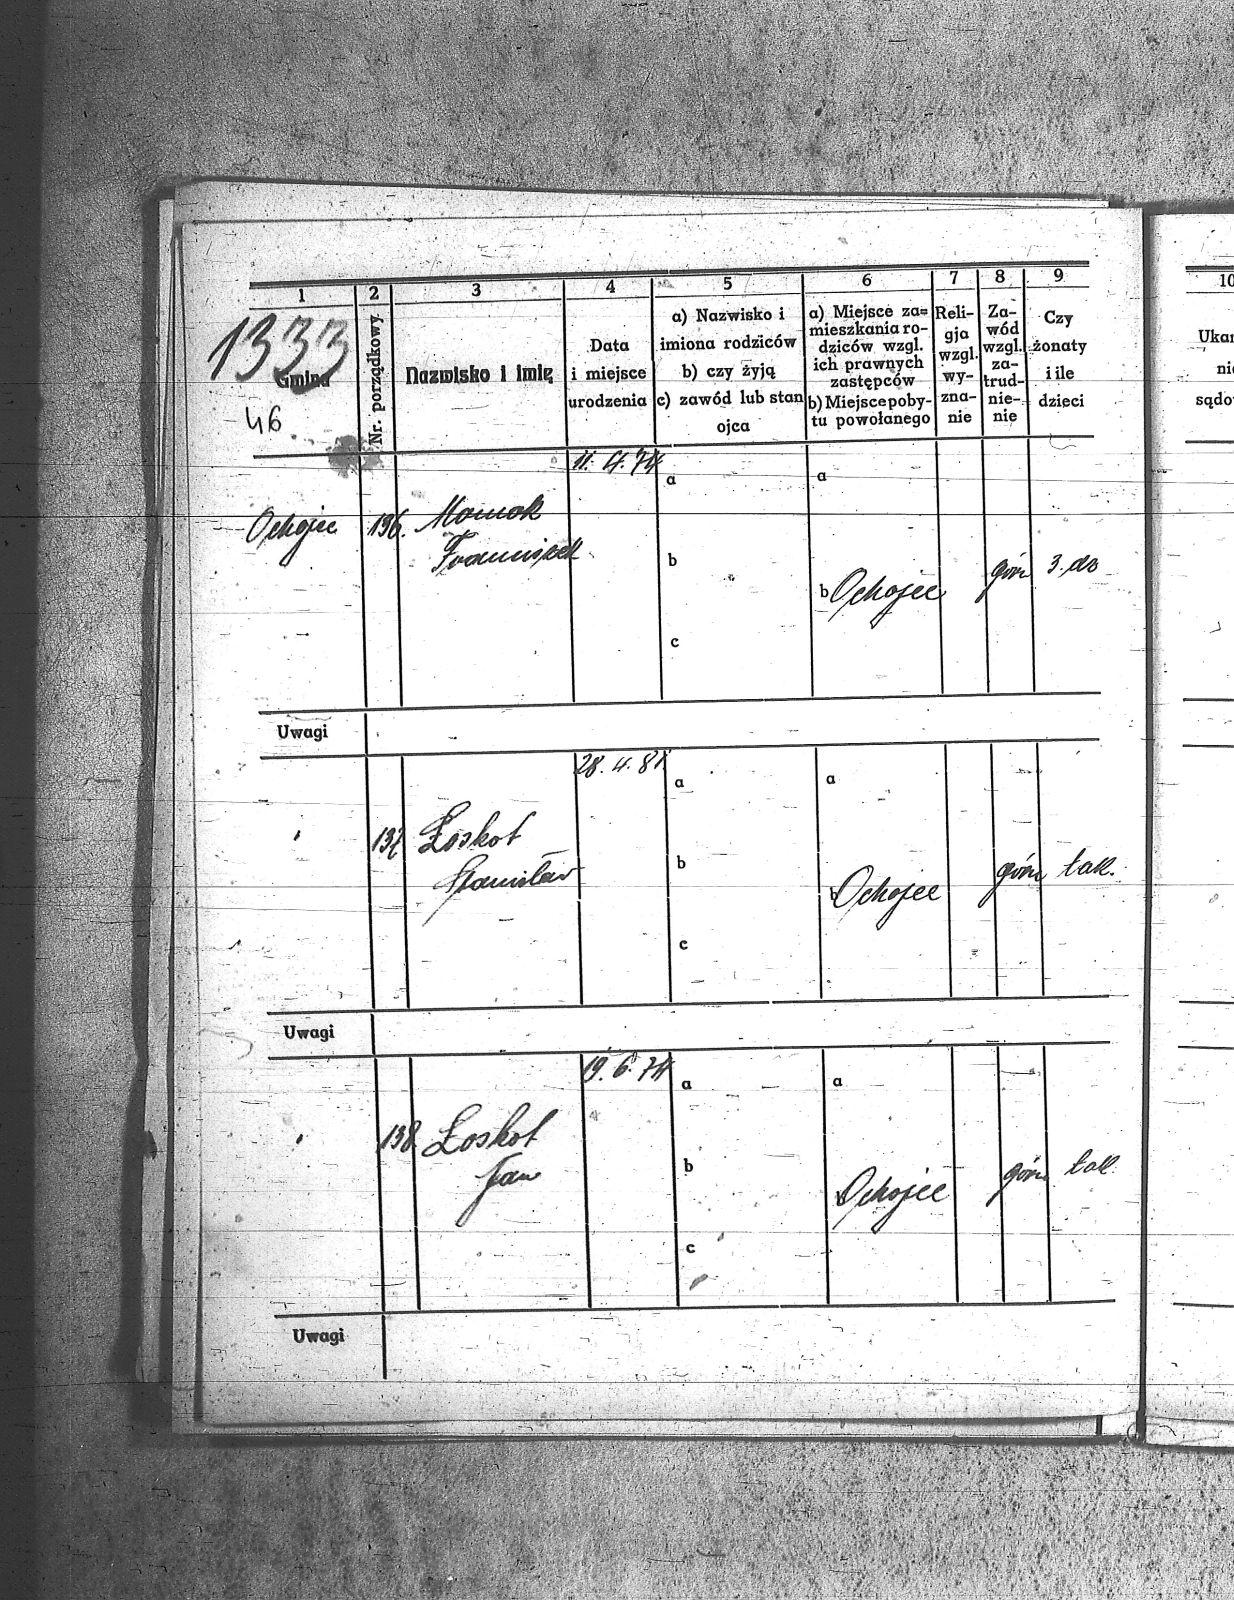 1 2 3 4 5 6 7 8 9 10
1333
Gmina
46
Nr. porządkowy.
Nazwisko i imię
Data
i miejsce
urodzenia
a) Nazwisko i
imiona rodziców
b) czy żyją
c) zawód lub stan
ojca
a) Miejsce za=
mieszkania ro-
dziców wzgl.
ich prawnych
zastępców
b) Miejsce poby-
tu powołanego
Reli-
gja
wzgl.
wy-
zna-
nie
Za-
wód
wzgl.
za-
trud-
nie-
nie
Czy
żonaty
i ile
dzieci
11. 4. 74
a a
Ochojec 136.
Franciszek
b górn 3. dz
b Ochojec
c
Uwagi
28. 4. 81
a a
137 Łoskot
Stanisław
b górn tak.
b Ochojec
c
Uwagi
19. 6. 74
a a
138. Łoskot
Jan
b górn tak
b Ochojec
c
Uwagi